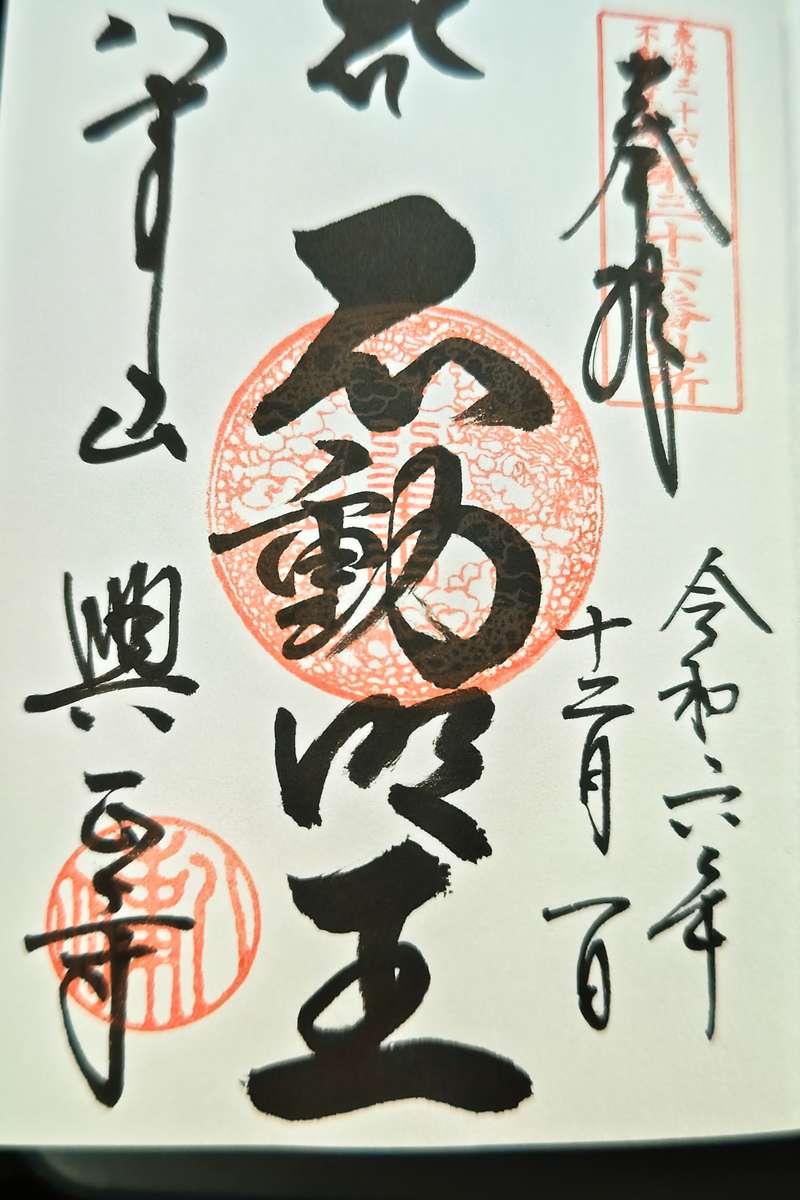 東海三十六
第三十六番札所
奉拝
令和六年
十二月一日
不動明王
八事山
興正寺